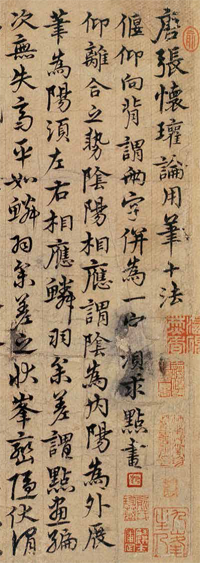 唐張懷瓘論用筆十法
偃仰向背謂兩字併為一字須求點畫
仰離合之勢陰陽相應謂陰為內陽為外展
筆為陽須左右相應鱗羽參差謂點畫編
次無失高平如鱗羽參差之狀峯巒隱伏謂